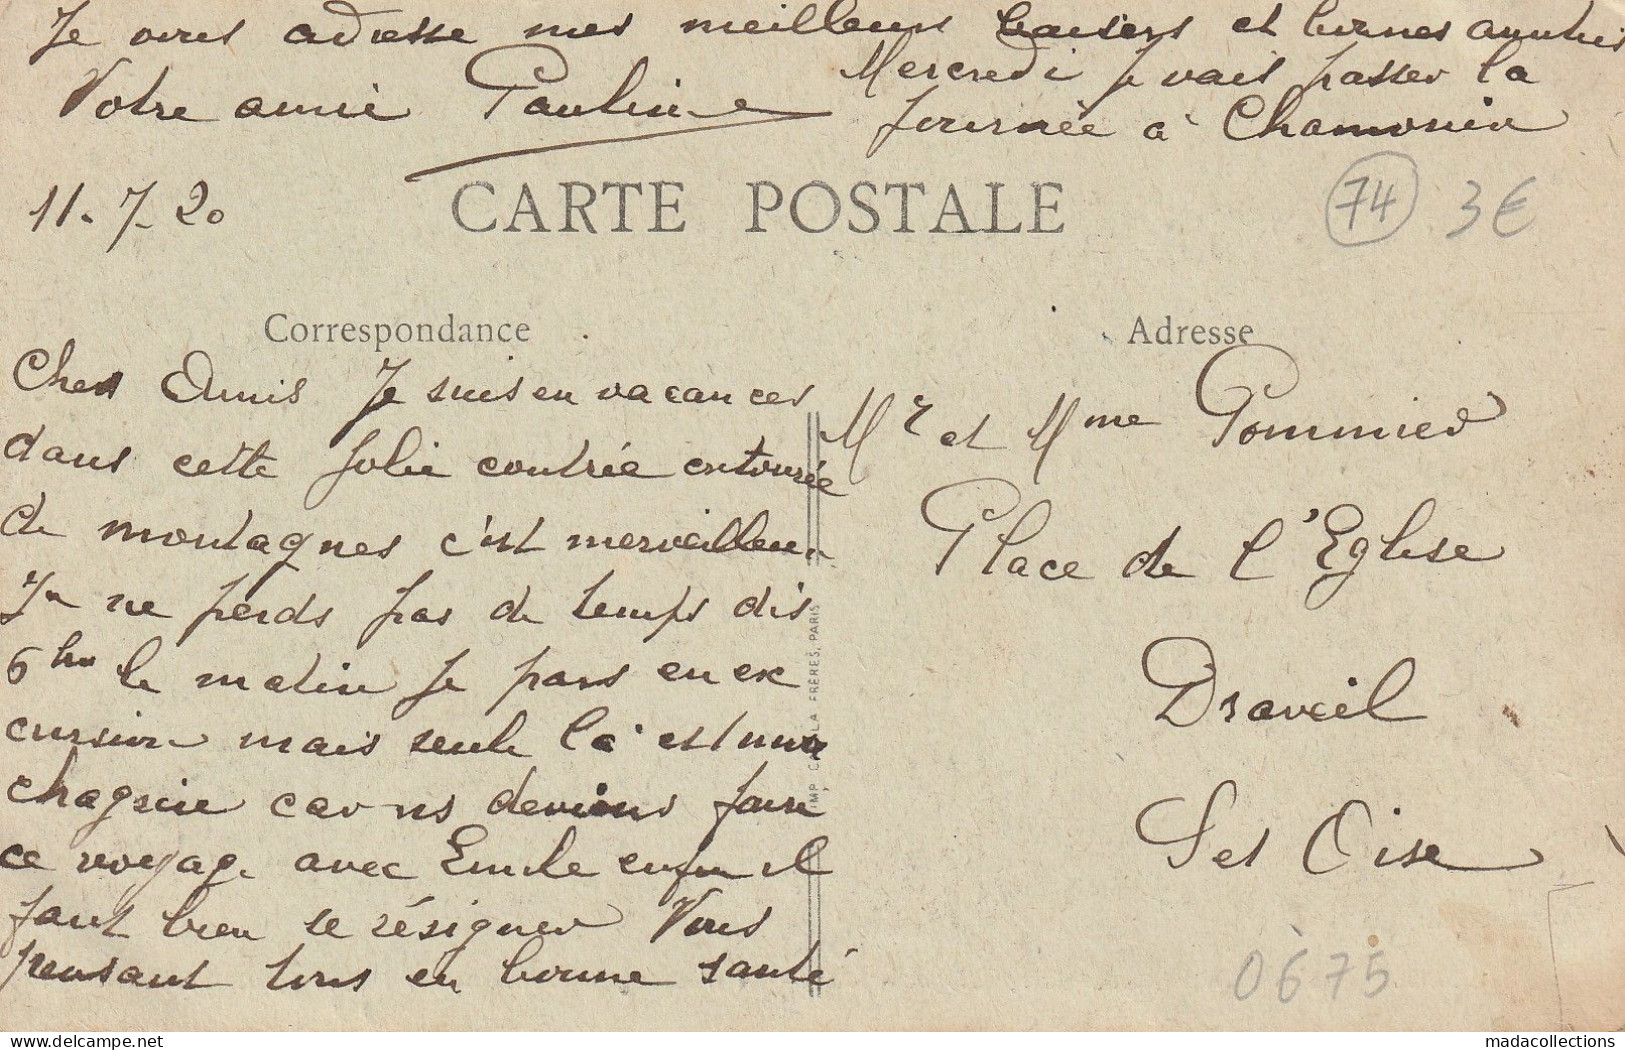 Je vous adresse mes meilleurs baisers et bonnes amitiés
Votre amie Pauline
Mercredi je vais passer la
journée à Chamonix
11-7-20
CARTE POSTALE
74 3€
Correspondance
Adresse
Chers Amis Je suis en vacances
dans cette jolie contrée entourée
de montagnes c'est merveilleux
Je ne perds pas de temps dès
6 hres le matin je pars en ex
cursion mais seule là est mon
chagrin car ns devions faire
ce voyage avec Emile enfin il
faut bien se résigner Vous
pensant tous en bonne santé
Mr et Mme Pommier
Place de l'Eglise
Draveil
S et Oise
IMP. CATALA FRÈRES, PARIS
0675
madacollections